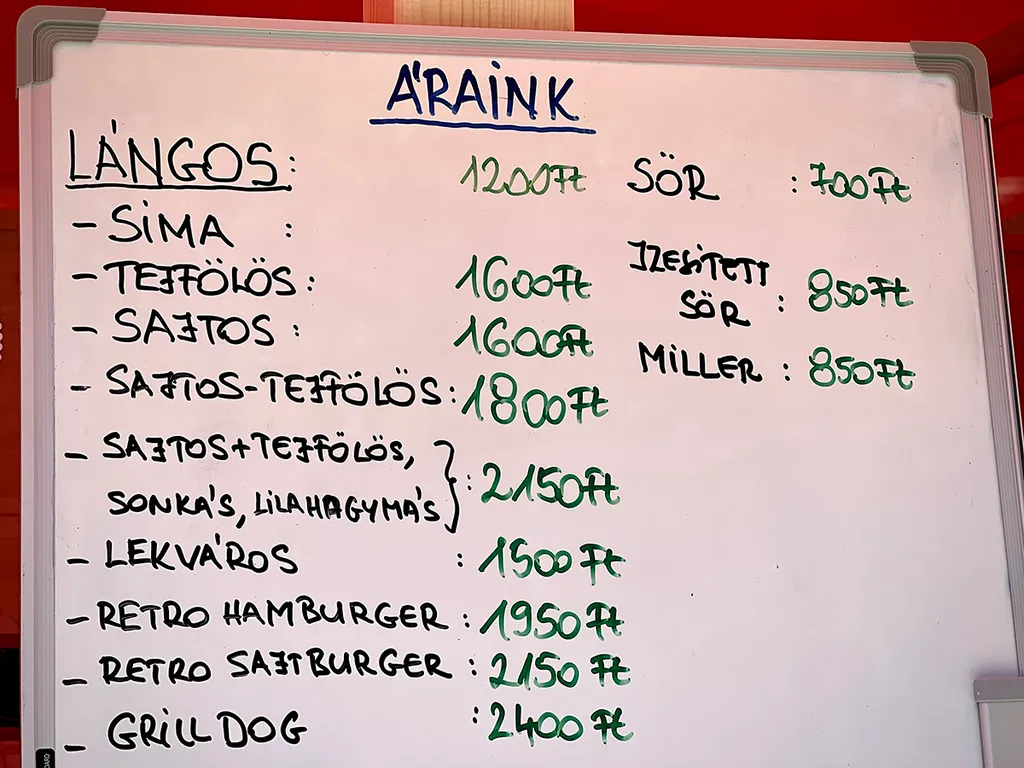 ÁRAINK
LÁNGOS: 1200Ft
- SIMA :
- TEJFÖLÖS: 1600Ft
- SAJTOS : 1600Ft
- SAJTOS-TEJFÖLÖS: 1800Ft
- SAJTOS+TEJFÖLÖS,
SONKÁS, LILAHAGYMÁS } : 2150Ft
- LEKVÁROS : 1500 Ft
- RETRO HAMBURGER : 1950 Ft
- RETRO SAJTBURGER : 2150 Ft
- GRILL DOG : 2400 Ft
SÖR : 700 Ft
IZESITETT
SÖR : 850 Ft
MILLER : 850 Ft